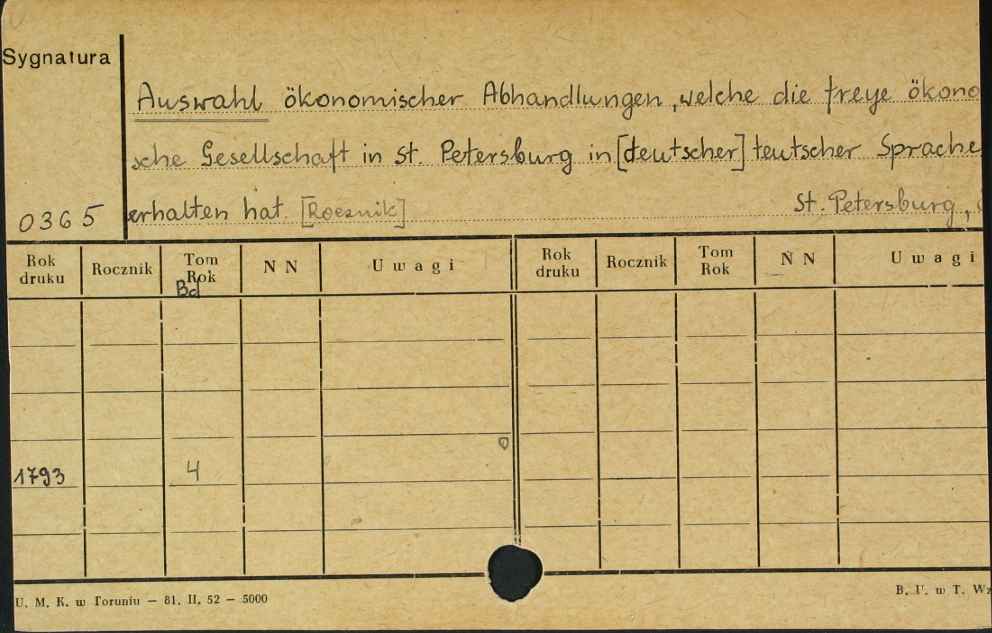 Sygnatura
Auswahl ökonomischer Abhandlungen, welche die freye ökono
sche Gesellschaft in St. Petersburg in [deutscher] teutscher Sprache
0365 erhalten hat. [Rocznik] St. Petersburg,
Rok druku Rocznik Tom Rok Bd N N Uwagi Rok druku Rocznik Tom Rok N N Uwagi
1793 4
U. M. K. w Toruniu — 81. II. 52 — 5000 B. U. w T. Wz